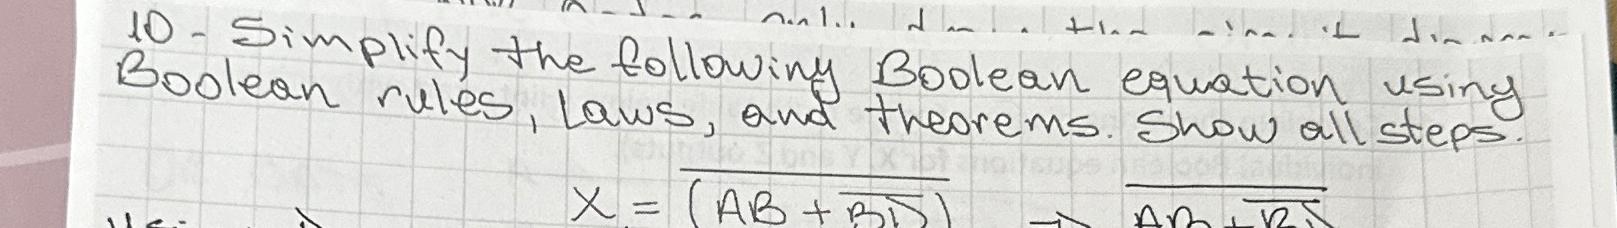 10 - Simplify the following Boolean equation using
Boolean rules, Laws, and theorems. Show all steps.
X = \overline{(AB + \overline{BD})} →